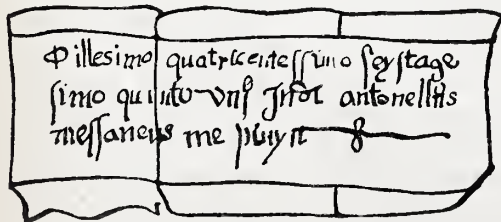 Millesimo quatricentessimo sexstage
simo quinto viijº antonellus
messaneus me pinxit